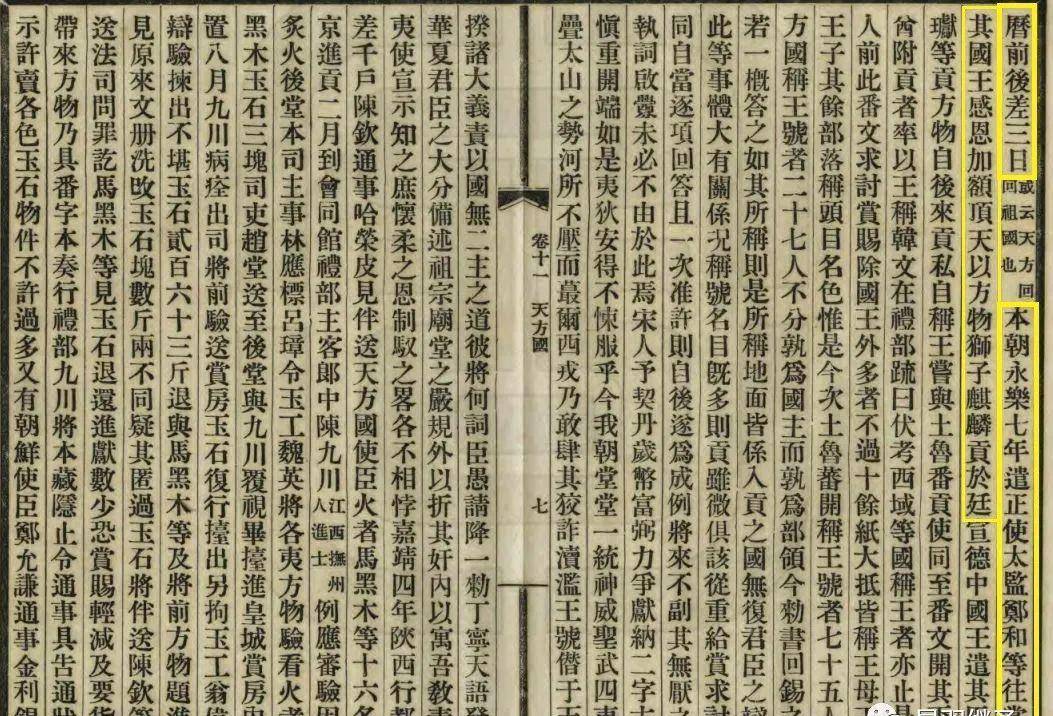 曆前後差三日或云天方回回祖國也本朝永樂七年遣正使太監鄭和等往
其國王感恩加額頂天以方物獅子麒麟貢於廷宣德中國王遣其
瓛等貢方物自後來貢私自稱王嘗與土魯番貢使同至番文開其
酋附貢者率以王稱韓文在禮部疏曰伏考西域等國稱王者亦止
人前此番文求討賞賜除國王外多者不過十餘紙大抵皆稱王母
王子其餘部落稱頭目名色惟是今次土魯蕃開稱王號者七十五人
方國稱王號者二十七人不分孰爲國主而孰爲部領今勑書回錫之
若一概答之如其所稱則是所稱地面皆係入貢之國無復君臣之
此等事體大有關係况稱號名目旣多則貢雖微俱該從重給賞求討
同自當逐項回答且一次准許則自後遂爲成例將來不副其無厭之
執詞啟釁未必不由於此焉宋人予契丹歲幣富弼力爭獻納二字
愼重開端如是夷狄安得不悚服乎今我朝堂堂一統神威聖武四
疊太山之勢河所不壓而蕞爾西戎乃敢肆其狡詐瀆濫王號僭于
卷十一 天方國 七
揆諸大義責以國無二主之道彼將何詞臣愚請降一勑丁寧天語
華夏君臣之大分備述祖宗廟堂之嚴規外以折其奸內以寓吾敎
夷使宣示知之庶懷柔之恩制馭之畧各不相悖嘉靖四年陜西行都
差千戶陳欽通事哈榮皮見伴送天方國使臣火者馬黑木等十六名
京進貢二月到會同館禮部主客郎中陳九川江西撫州人進士例應審驗
炙火後堂本司主事林應標呂璋令玉工魏英將各夷方物驗看火者
黑木玉石三塊司吏趙堂送至後堂與九川覆視畢擡進皇城賞房
置八月九川病痊出司將前驗送賞房玉石復行擡出另拘玉工翁
辯驗揀出不堪玉石貳百六十三斤退與馬黑木等及將前方物題
見原來文册洗改玉石塊數斤兩不同疑其匿過玉石將伴送陳欽
送法司問罪訖馬黑木等見玉石退還進獻數少恐賞賜輕減及要
帶來方物乃具番字本奏行禮部九川將本藏隱止令通事具告通狀
示許賣各色玉石物件不許過多又有朝鮮使臣鄭允謙通事金利